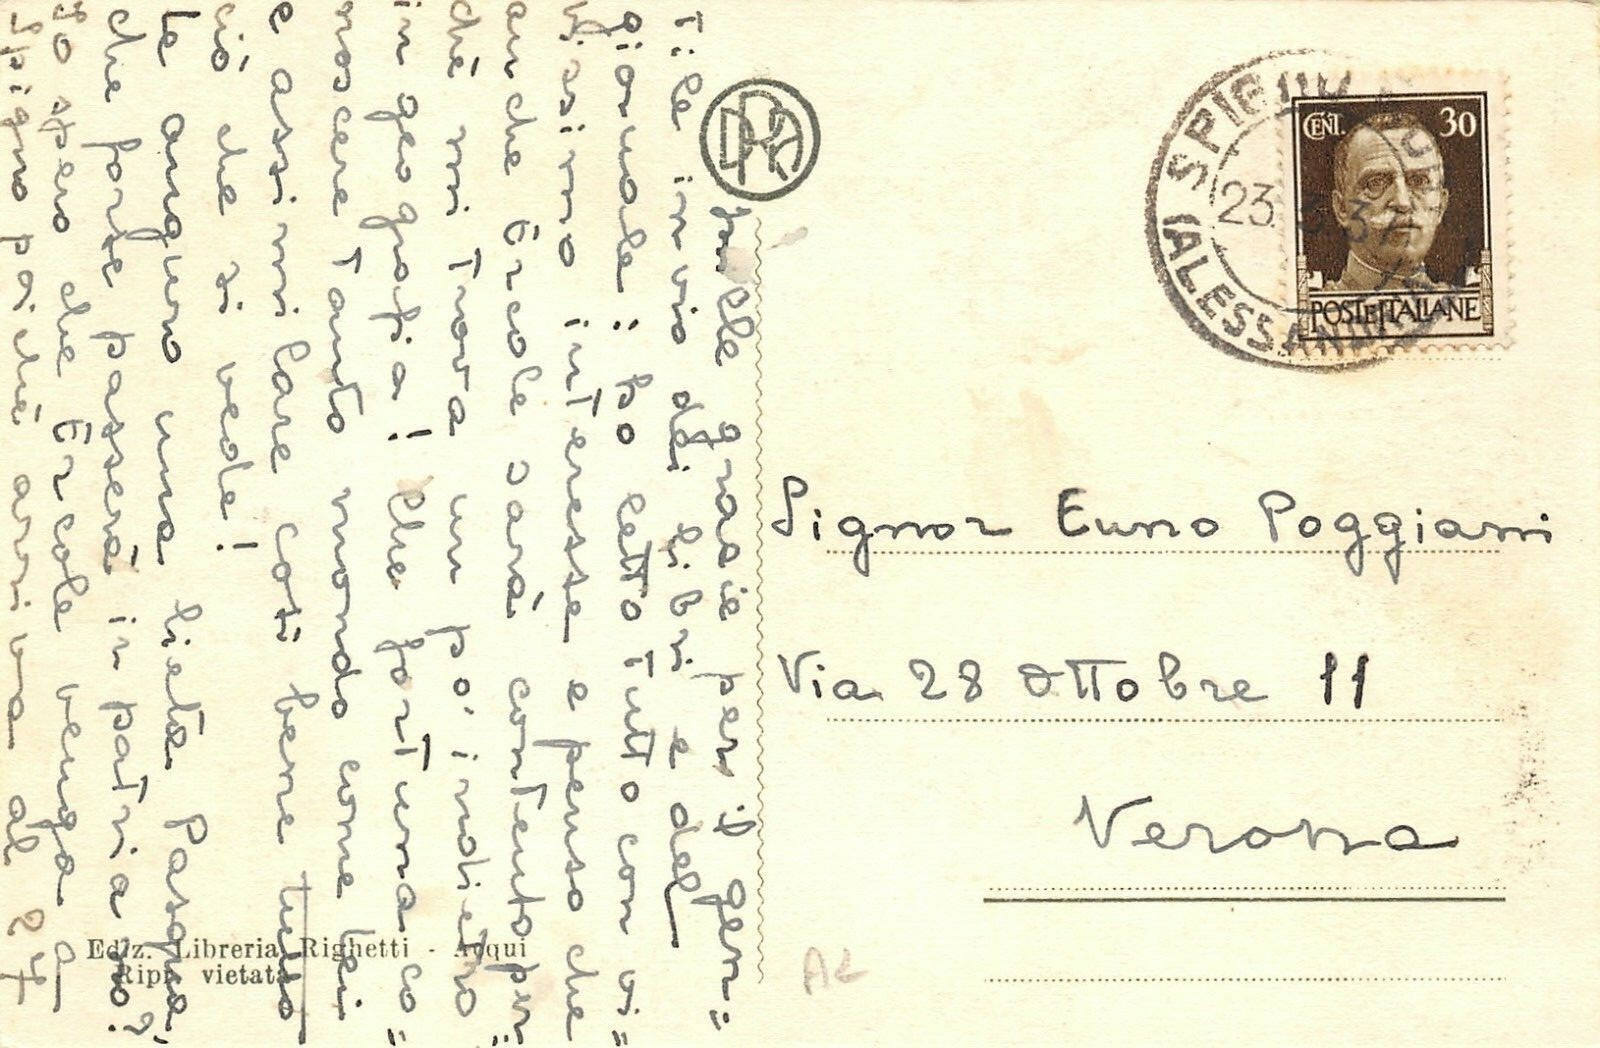 Mille grazie per il gen=
tile invio dei libri e del
giornale: ho letto tutto con vi=
vissimo interesse e penso che
anche Ercole sarà contento per:
chè mi trova un po' indietro
in geografia! Che fortuna co=
noscere tanto mondo come lei
e assimilare così bene tutto
ciò che si vede!
Le auguro una lieta Pasqua,
che forse passerà in patria no?
Io spero che Ercole venga a
Spigno poichè arriva al 27
Ediz. Libreria Righetti - Acqui
Ripr. vietata
SPIGNO
(ALESSANDRIA)
23
CENT. 30
POSTE ITALIANE
Signor Enno Poggiani
Via 28 Ottobre 11
Verona
AL